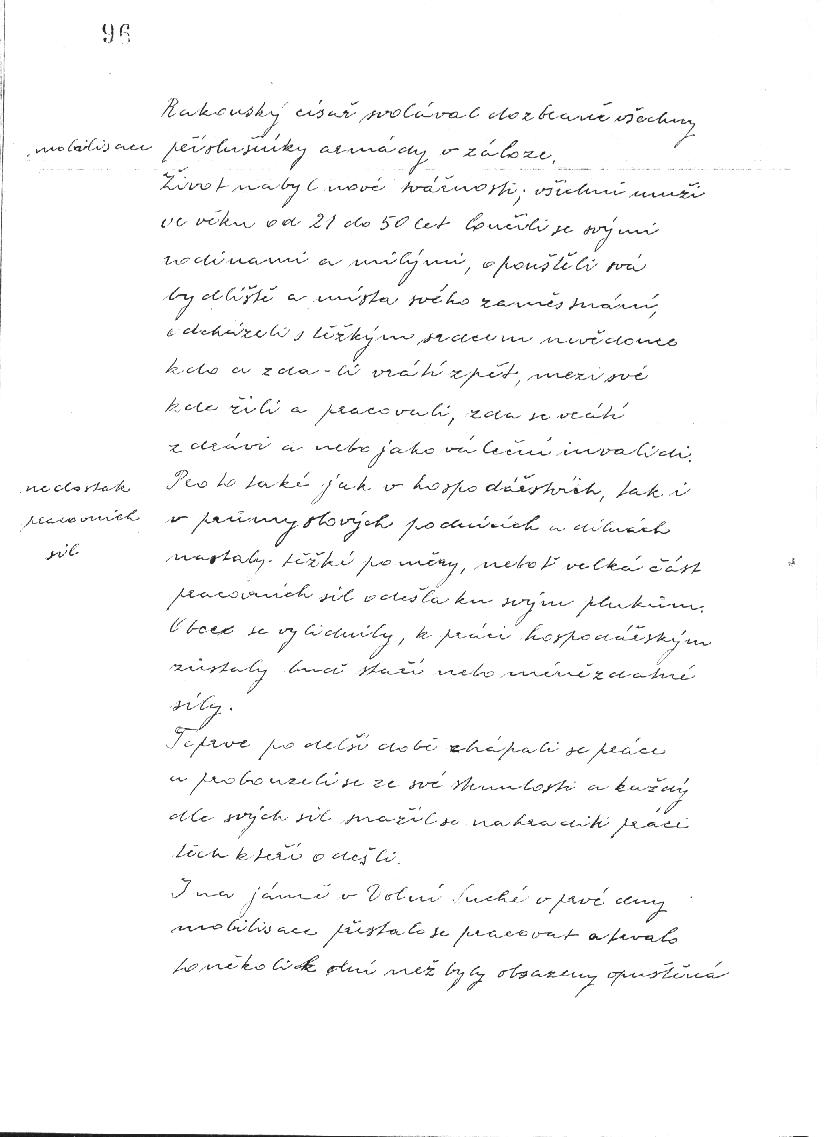 96
Rakouský císař svolával dozbraně všechny
mobilisace
příslušníky armády v záloze.
Život nabyl nové tvářnosti; všichni muži
ve věku od 21 do 50 let loučili se svými
rodinami a milými, opouštěli svá
bydliště a místa svého zaměstnání,
odcházeli s těžkým srdcem nevědouce
kdo a zda-li vrátí zpět, mezi své
kde žili a pracovali, zda se vrátí
zdrávi a nebo jako váleční invalidi.
nedostatek
pracovních
sil
Proto také jak v hospodářstvích, tak i
v průmyslových podnicích a dílnách
nastaly těžké poměry, neboť velká část
pracovních sil odešla ku svým plukům.
Obce se vylidnily, k práci hospodářským
zůstaly buď staří nebo méně zdatné
síly.
Teprve po delší době chápali se práce
a probouzeli se ze své strnulosti a každý
dle svých sil snažil se nahraditi práci
těch kteří odešli.
I na jámě v Volní Suché v prvé dny
mobilisace přestalo se pracovat a trvalo
to několik dní než byly obsazeny opuštěná